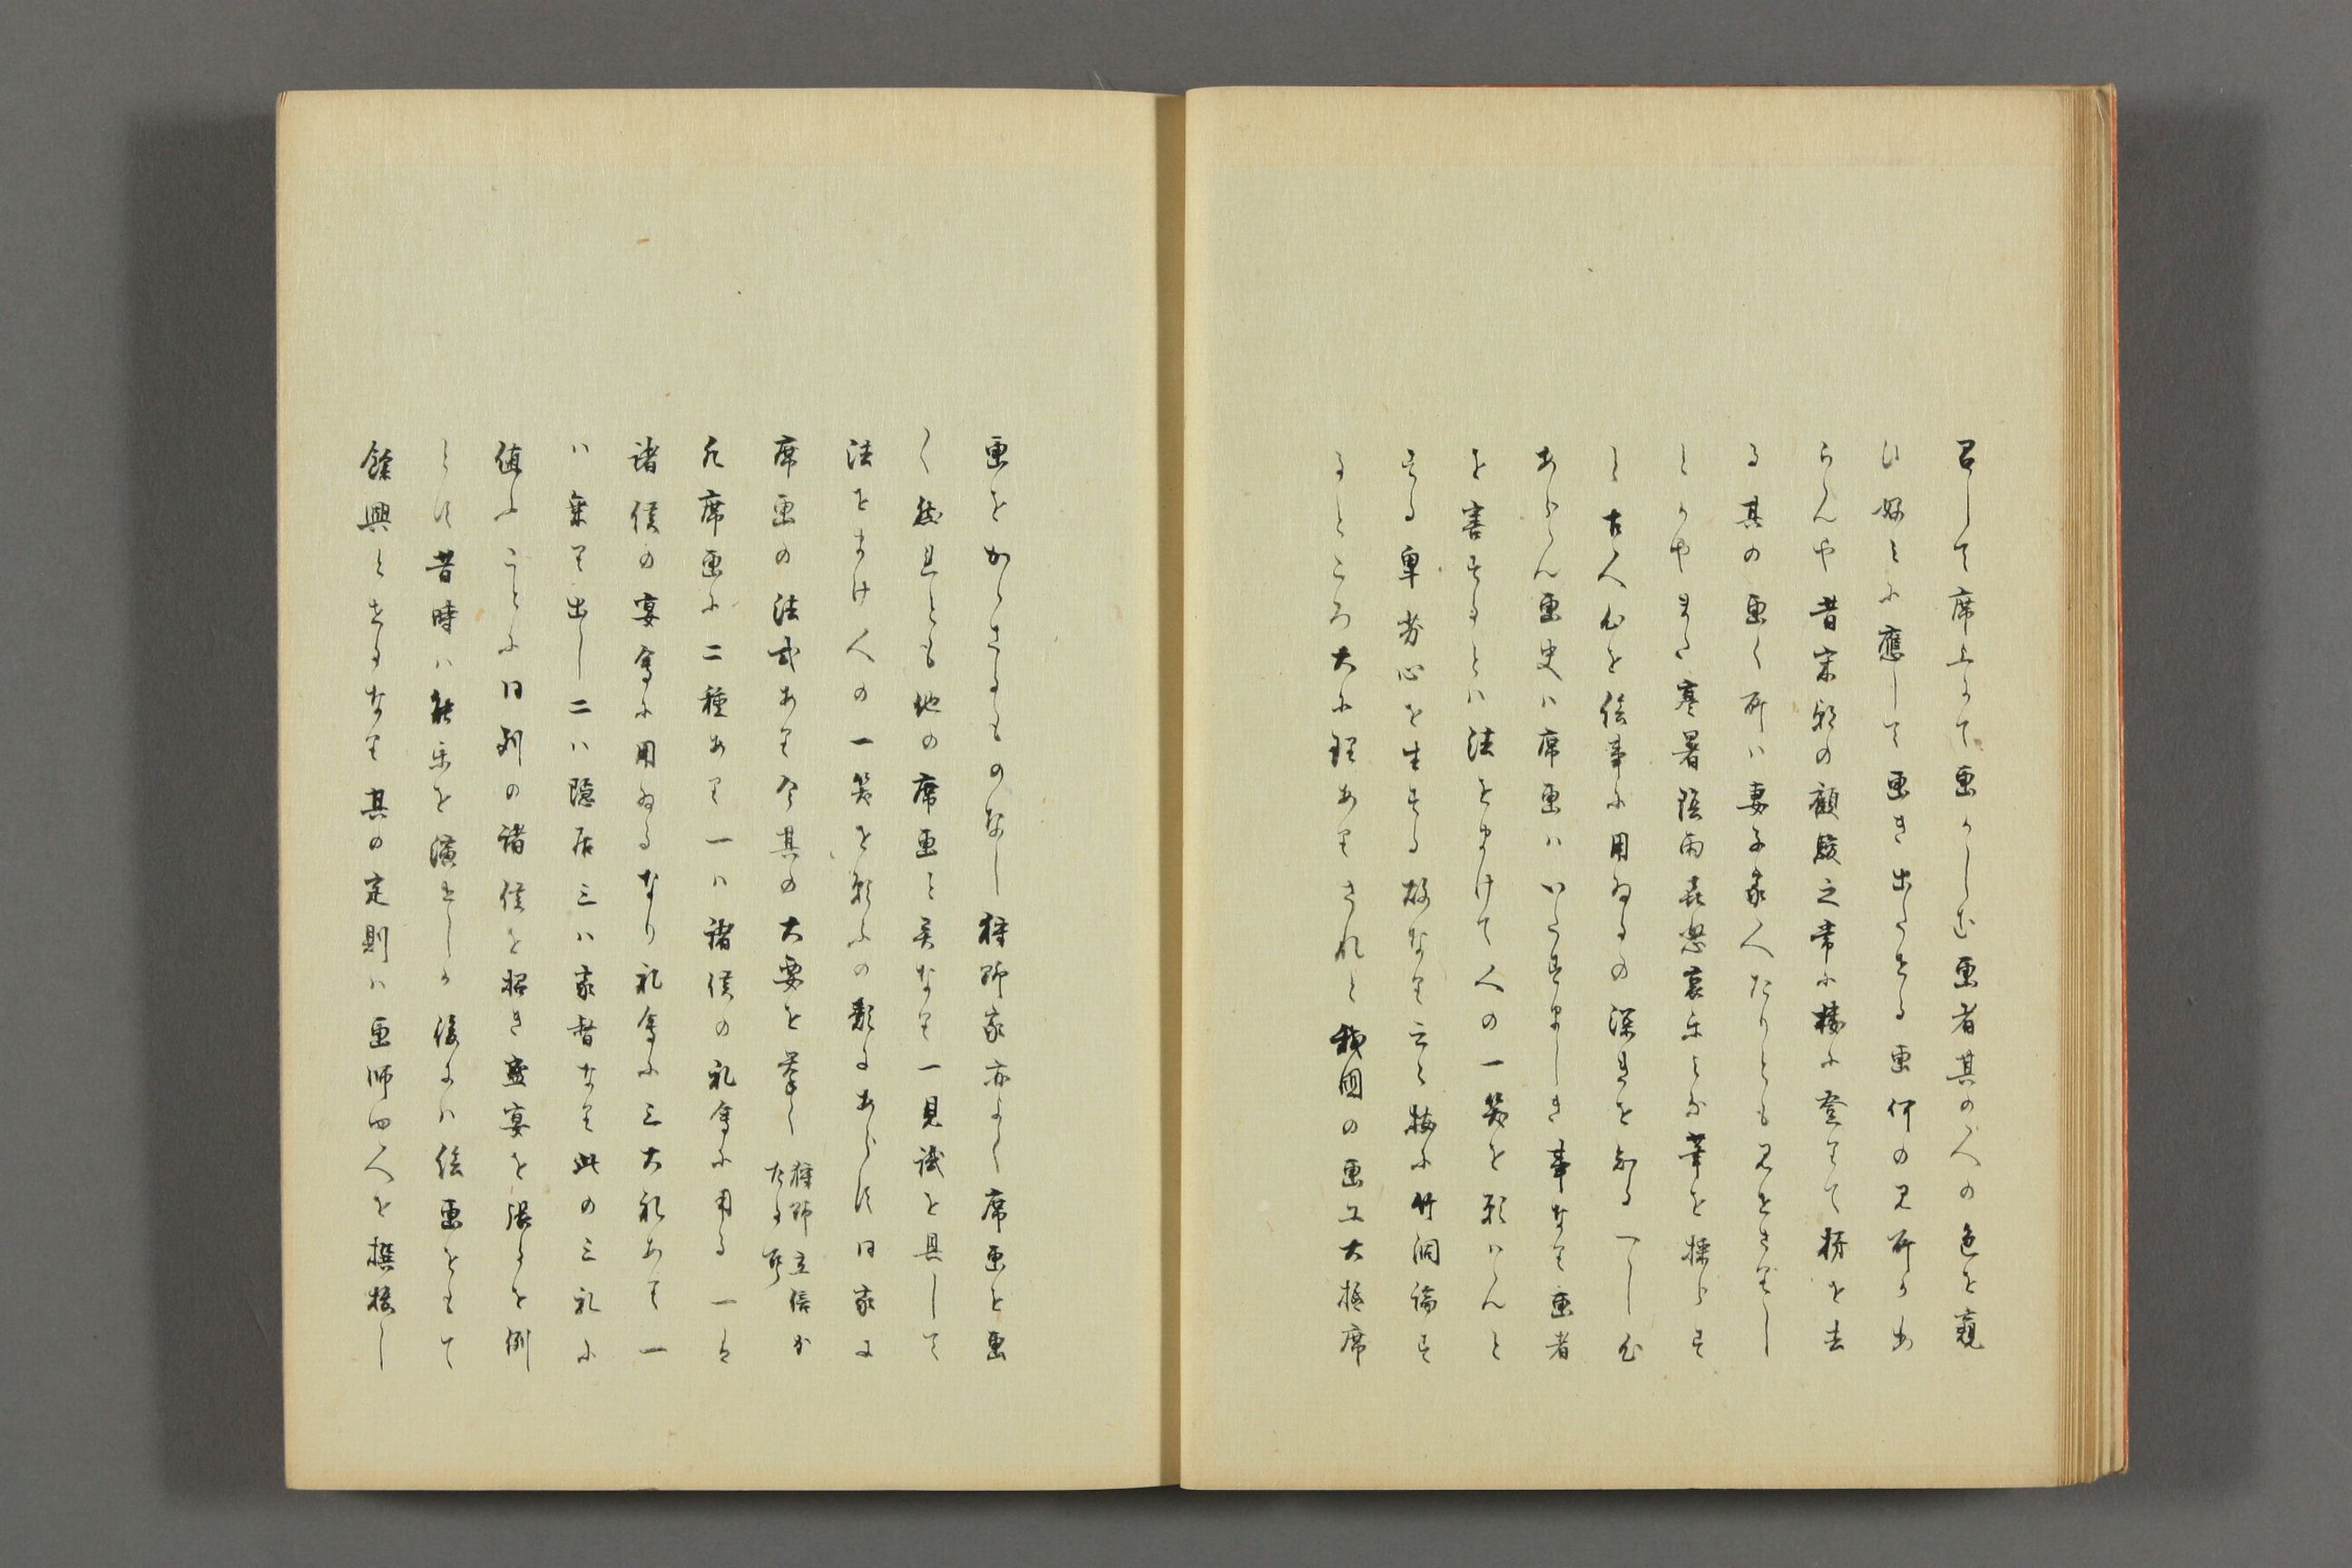 君して席上にて画かしむ画者其の人の色を窺
ひ好みに應して画き出したる画何の見所かあ
らんや昔宋朝の顧駿之常に楼に登りて梯を去
る其の画く所ハ妻子家人たりとも見せさりし
とかやまた寒暑陰雨喜怒哀楽にハ筆を操らす
と古人心を絵事に用ゐるの深きを知るへし心
あらん画史ハ席画ハいたすましき事なり画者
を害するとハ法をまけて人の一笑を願ハんと
する卑劣心を生する故なりと云々梅に竹洞論す
るところ大に理ありされと我国の画工大抵席
画をかゝさるものなし狩野家亦よく席画を画
く然れとも他の席画と異なり一見識を具して
法をまけ人の一笑を願ふの類にあらす同家に
席画の法式あり今其の大要を挙く 狩野立信か
たる所
凡席画に二種あり一ハ諸侯の礼会に用る一は
諸侯の宴会に用ゐるなり礼会に三大礼あり一
ハ乗り出し二ハ隠居三ハ家督なり此の三礼に
値ふことに同列の諸侯を招き盛宴を張るを例
とす昔時ハ能楽を演せしか後にハ絵画をもて
餘興とせるなり其の定則ハ画師四人を撰擇し